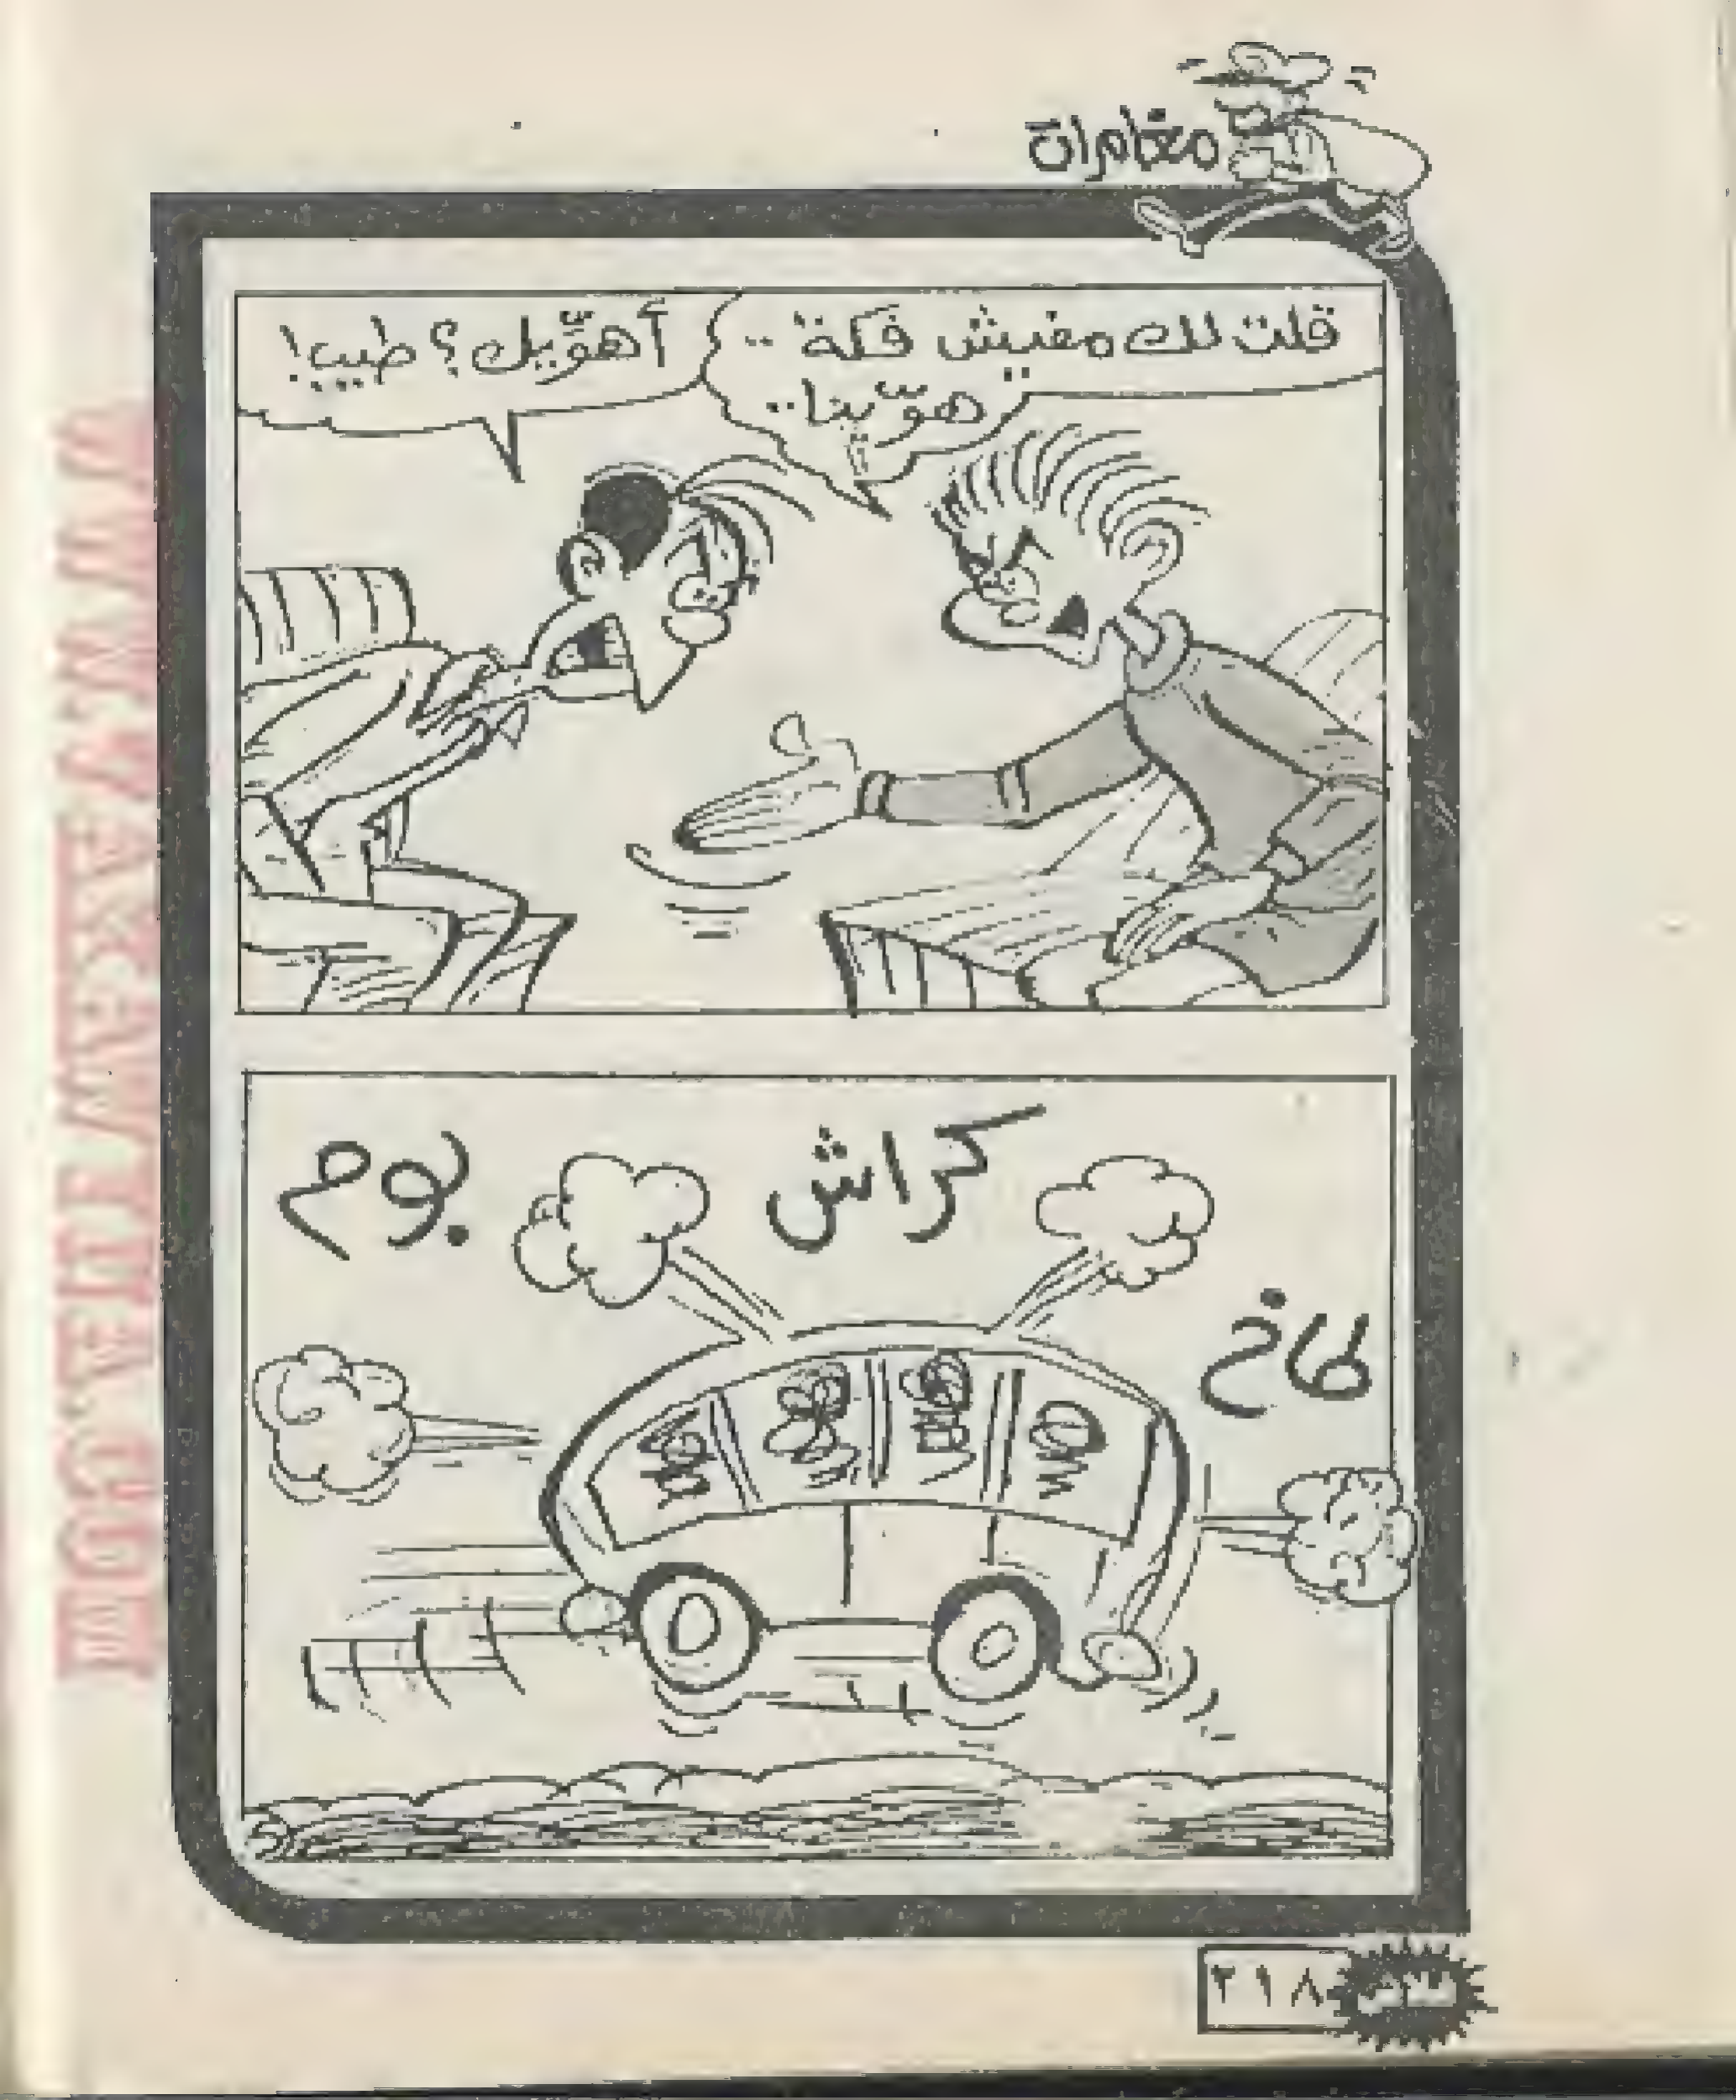 مغامرات
قلت لك مفيش فكة ..
هوّينا..
أهوّيك؟ طيب!
كراش
بوم
طاخ
فلاش
٢١٨